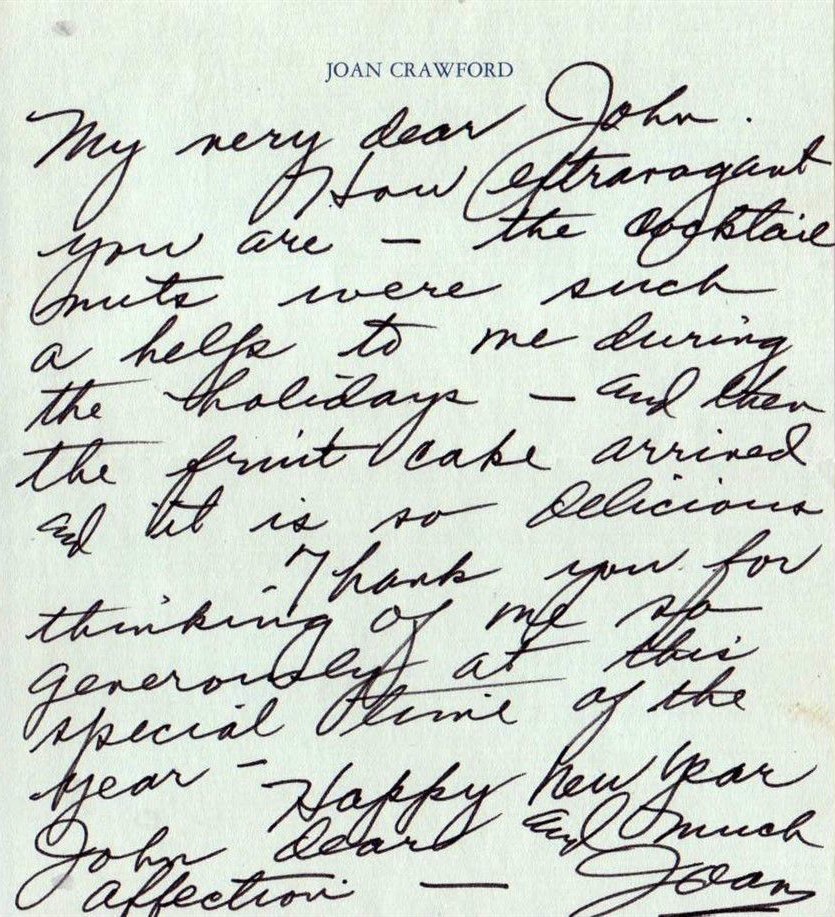 JOAN CRAWFORD
My very dear John.
How extravagant
you are – the cocktail
nuts were such
a help to me during
the holidays – and then
the fruit cake arrived
and it is so delicious
Thank you for
thinking of me so
generously at this
special time of the
year –
Happy New Year
John dear and much
affection — Joan